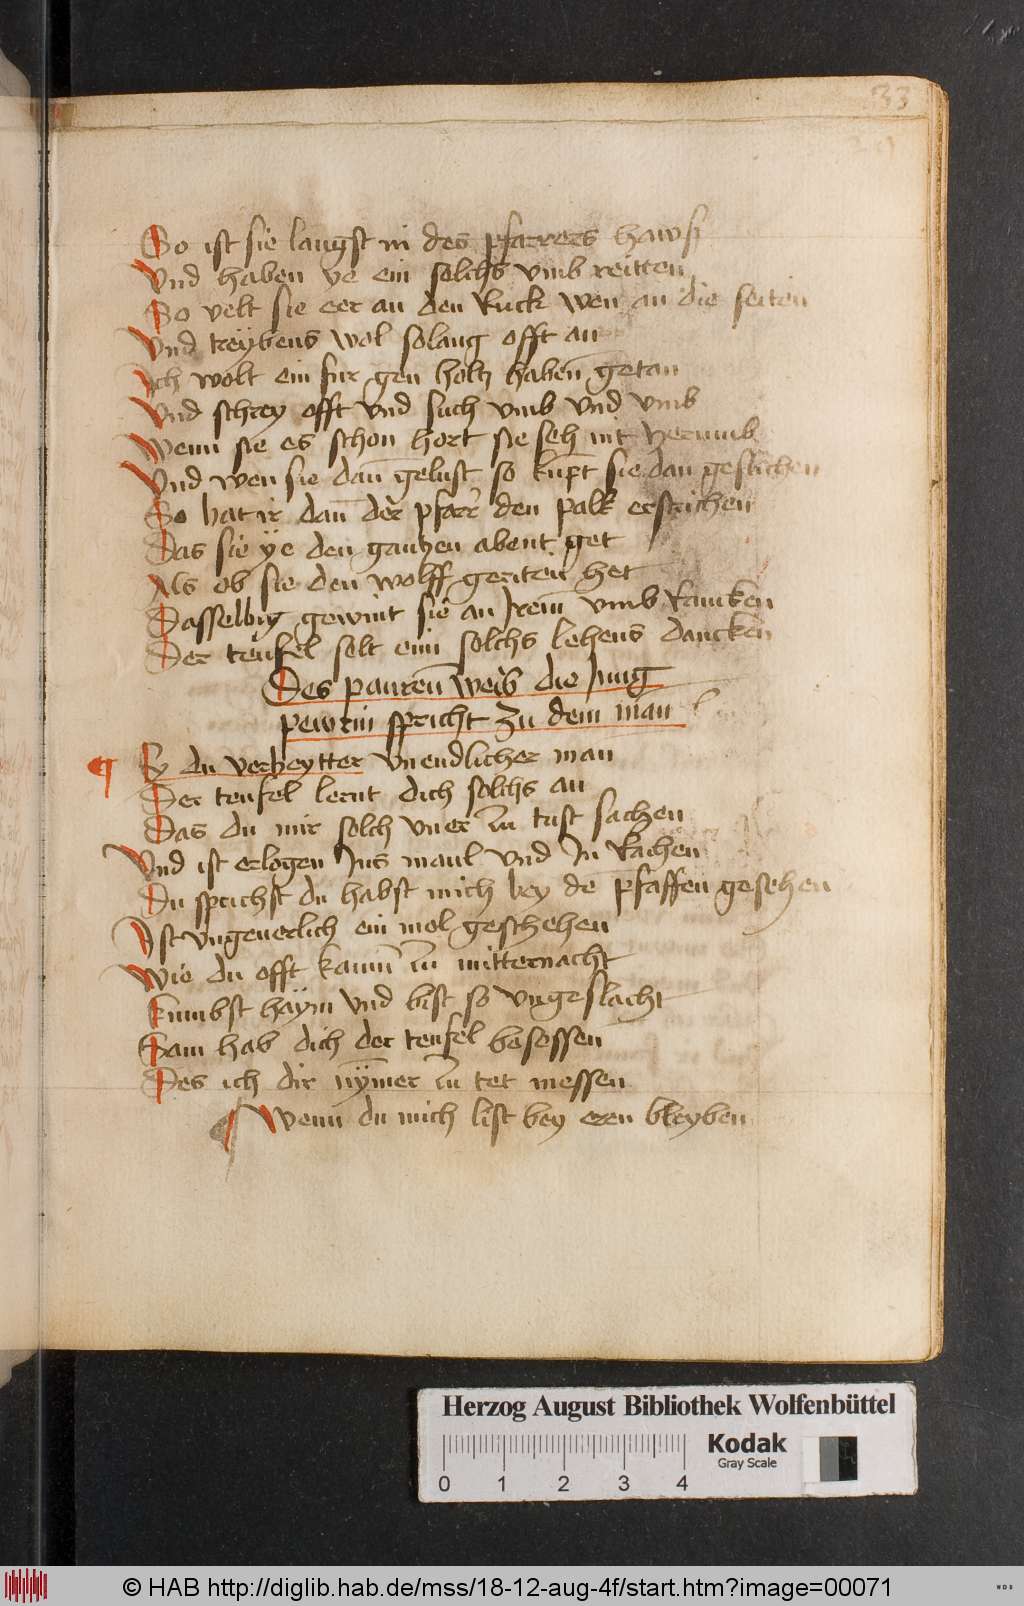 33
So ist sie langst in des pfarrers hawß
Vnd haben ye ein solchs vmb reitten
So velt sie eer an den Ruck wen an die seiten
Vnd treybens wol solang offt an
Ich wolt ein fur gen holtz haben getan
Vnd schrey offt vnd such vmb vnd vmb
Wenn sie es schon hort sie seh nit herumb
Vnd wen sie dañ gelust so kupt sie dan geslichen
So hat ir dañ der pfarr den palk erstrichen
Das sie ye den gantzen abent get
Als ob sie den wolff geriten het
Dasselbig gewint sie an Irem vmb Rancken
Der teufel solt eim solchs lehens dancken
Des pauren weib die Jung
pewrin spricht zu dem man
Ey du verheytter vnendlicher man
Der teufel lernt dich solchs an
Das du mir solch vner zu tust sachen
Vnd ist erlogen Ins maul vnd In Rachen
Du sprichst du habst mich bey dē pfaffen gesehen
Ist vngeuerlich ein mol geschehen
Wie du offt kaum zu mitternacht
kumbst haym vnd bist so vngeslacht
Sam hab dich der teufel besessen
Des ich dir nymer zu tet messen
Wenn du mich list bey eren bleyben
Herzog August Bibliothek Wolfenbüttel
0 1 2 3 4
Kodak
Gray Scale
© HAB http://diglib.hab.de/mss/18-12-aug-4f/start.htm?image=00071